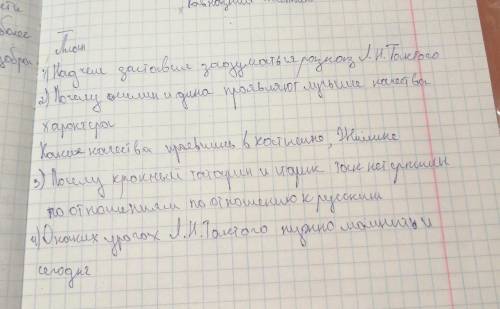 План
1) Над чем заставил задуматься рассказ Л.Н.Толстого
2) Почему жилин и дина проявляют лучшие качества
характера
Какие качества проевились в костылине, Жилине
3) Почему красный татарин и старик так нетерпимы
по отношениям по отношению к русским
4) О каких уроках Л.Н.Толстого нужно помнить и
сегодня